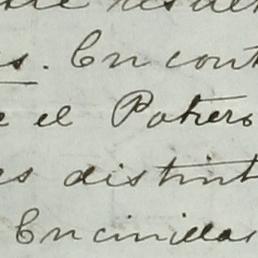 s. En cont
e el Potrero
es distint
Encinillas